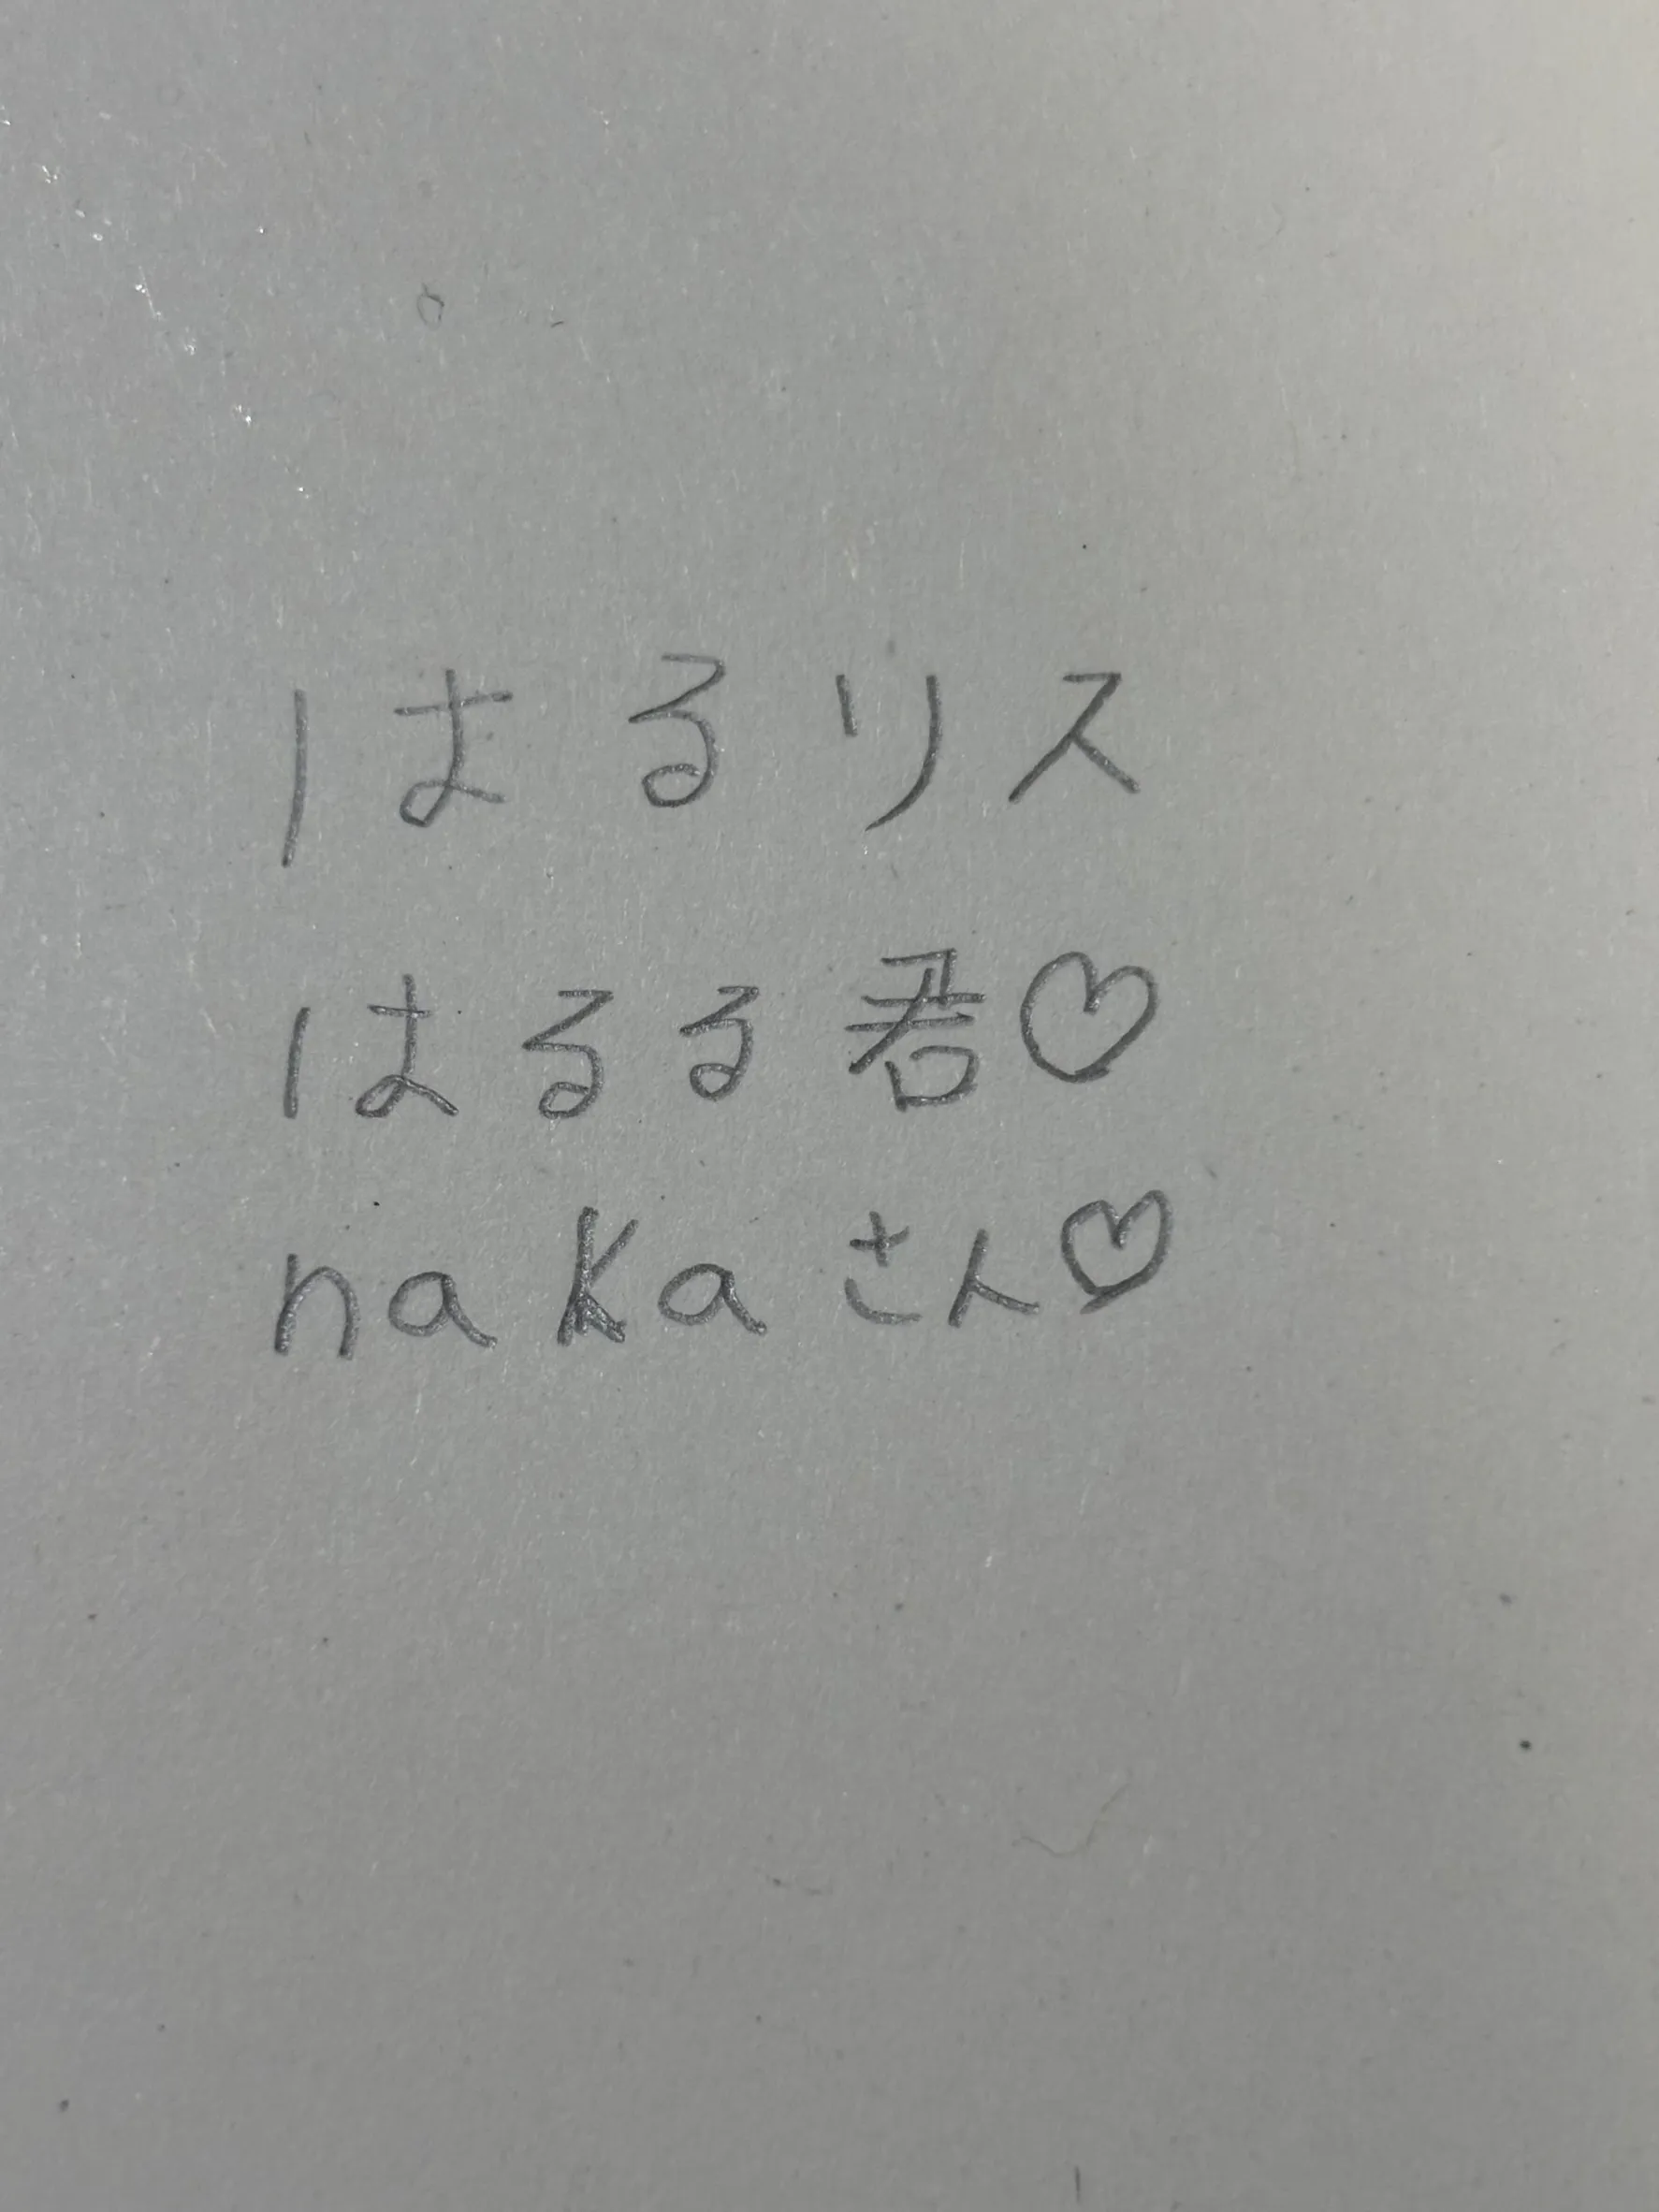 はるリス
はるる君♡
nakaさん♡